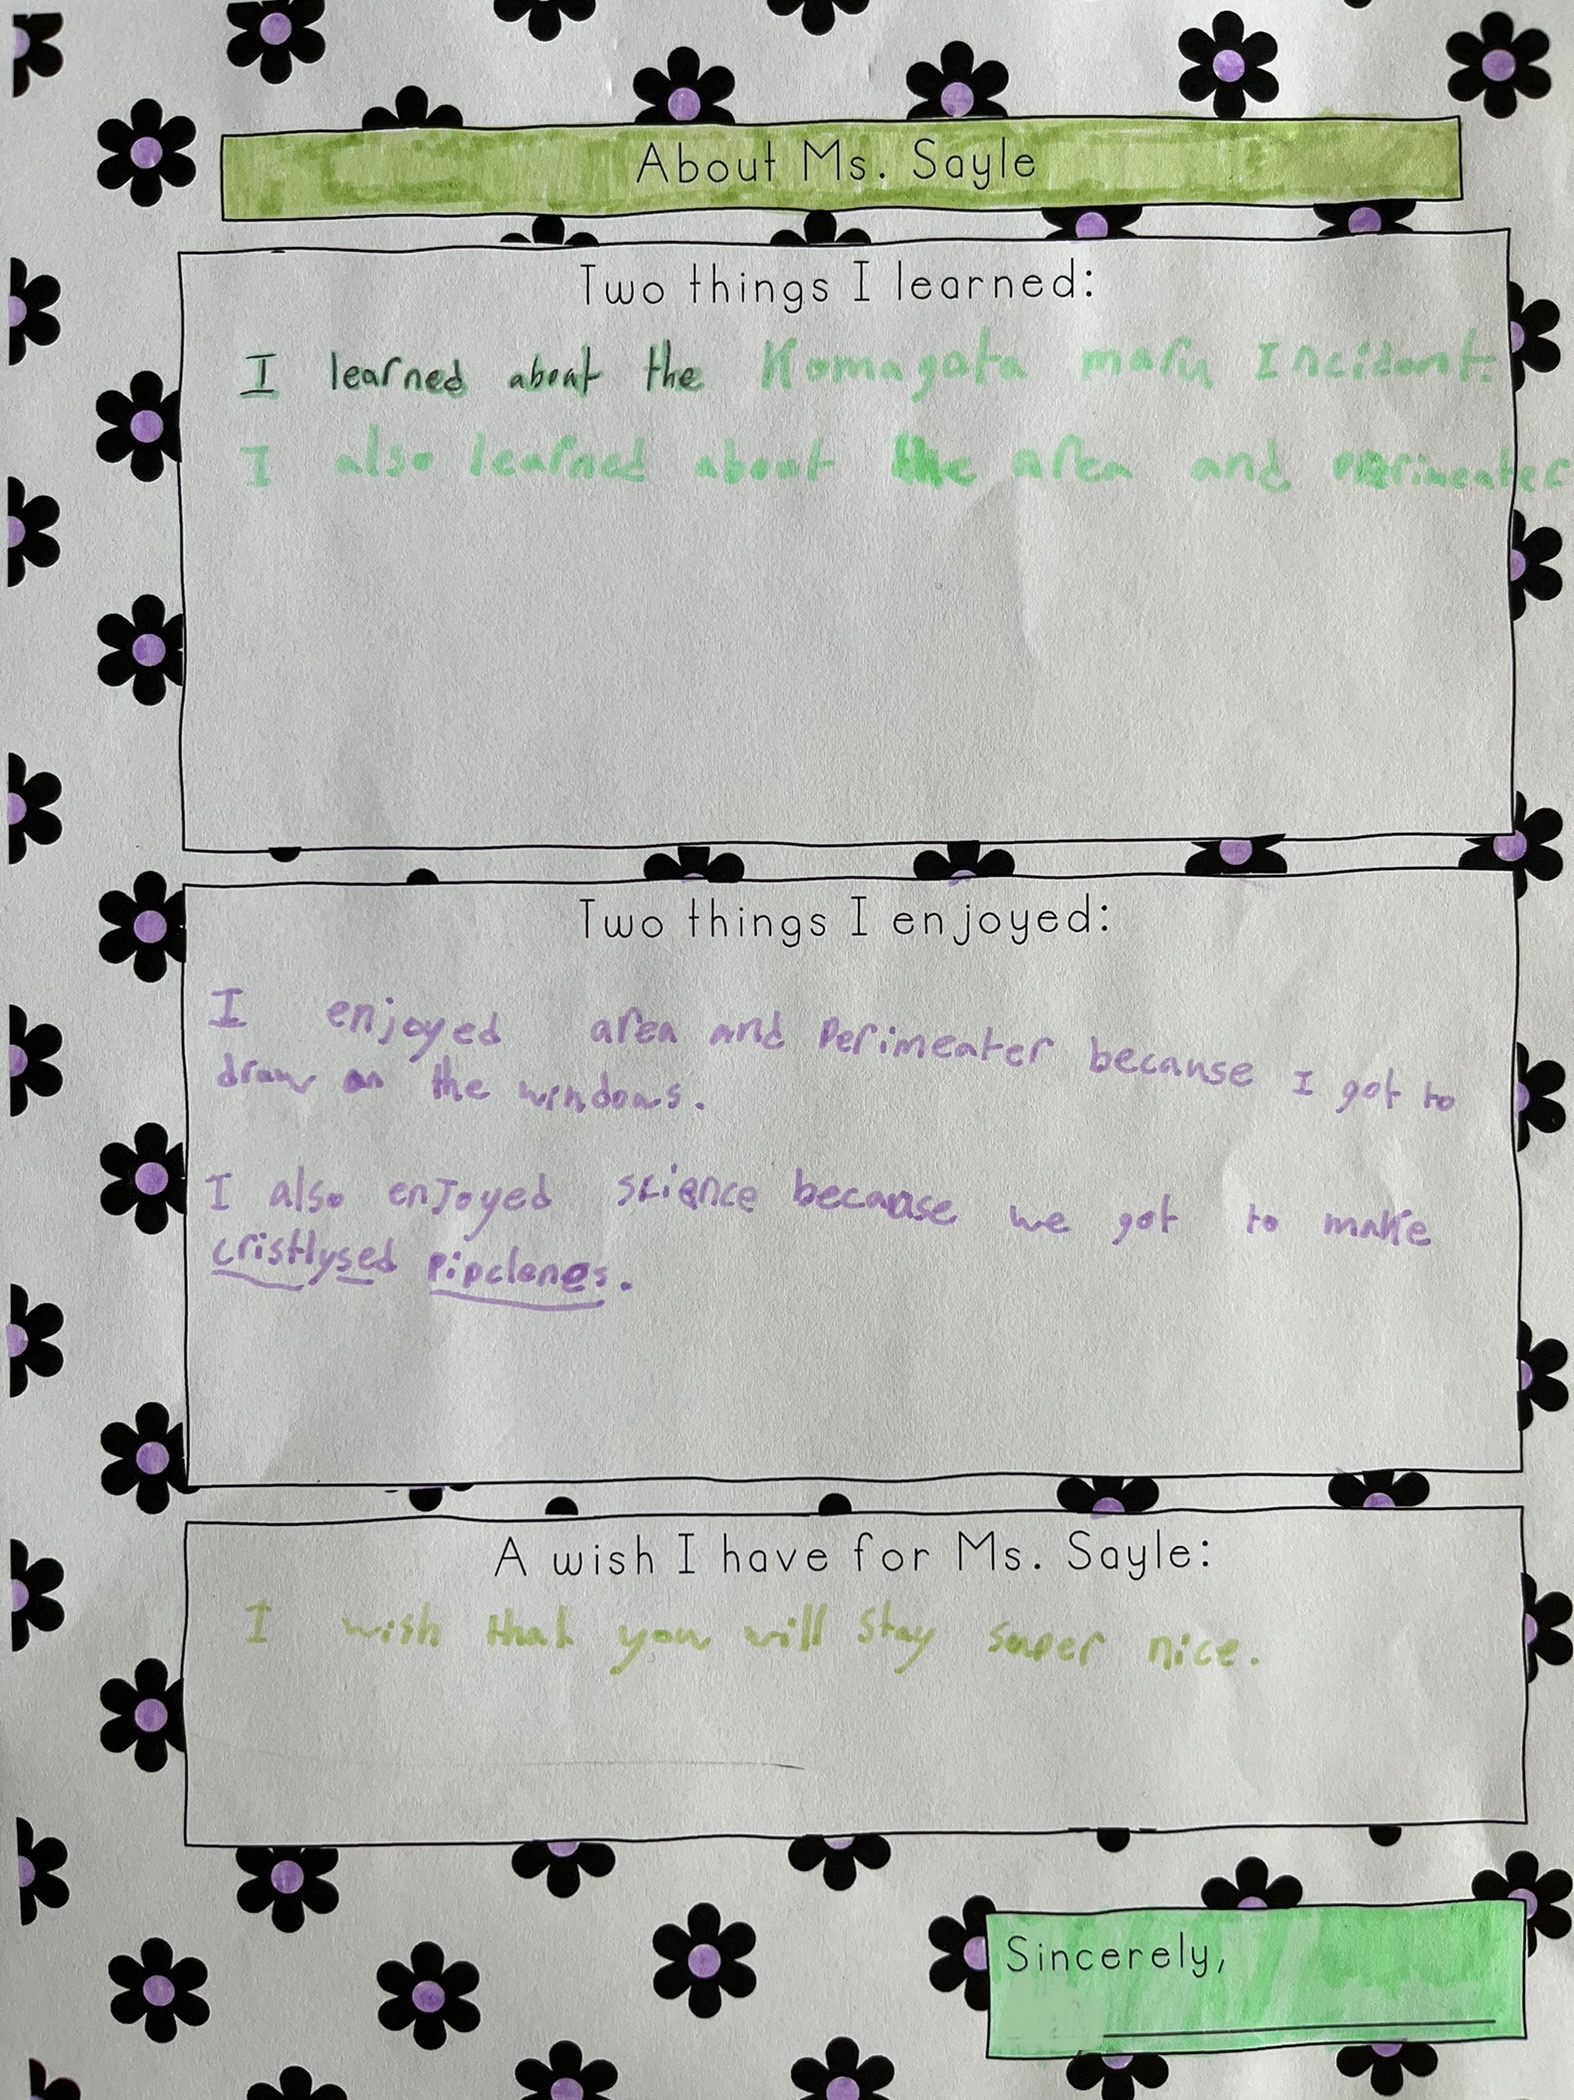 About Ms. Sayle
Two things I learned:
I learned about the Komagata maru Incident.
I also learned about the area and perimeater
Two things I enjoyed:
I enjoyed area and Perimeater because I got to
draw on the windows.
I also enJoyed science because we got to make
cristlysed pipclenes.
A wish I have for Ms. Sayle:
I wish that you will stay super nice.
Sincerely,